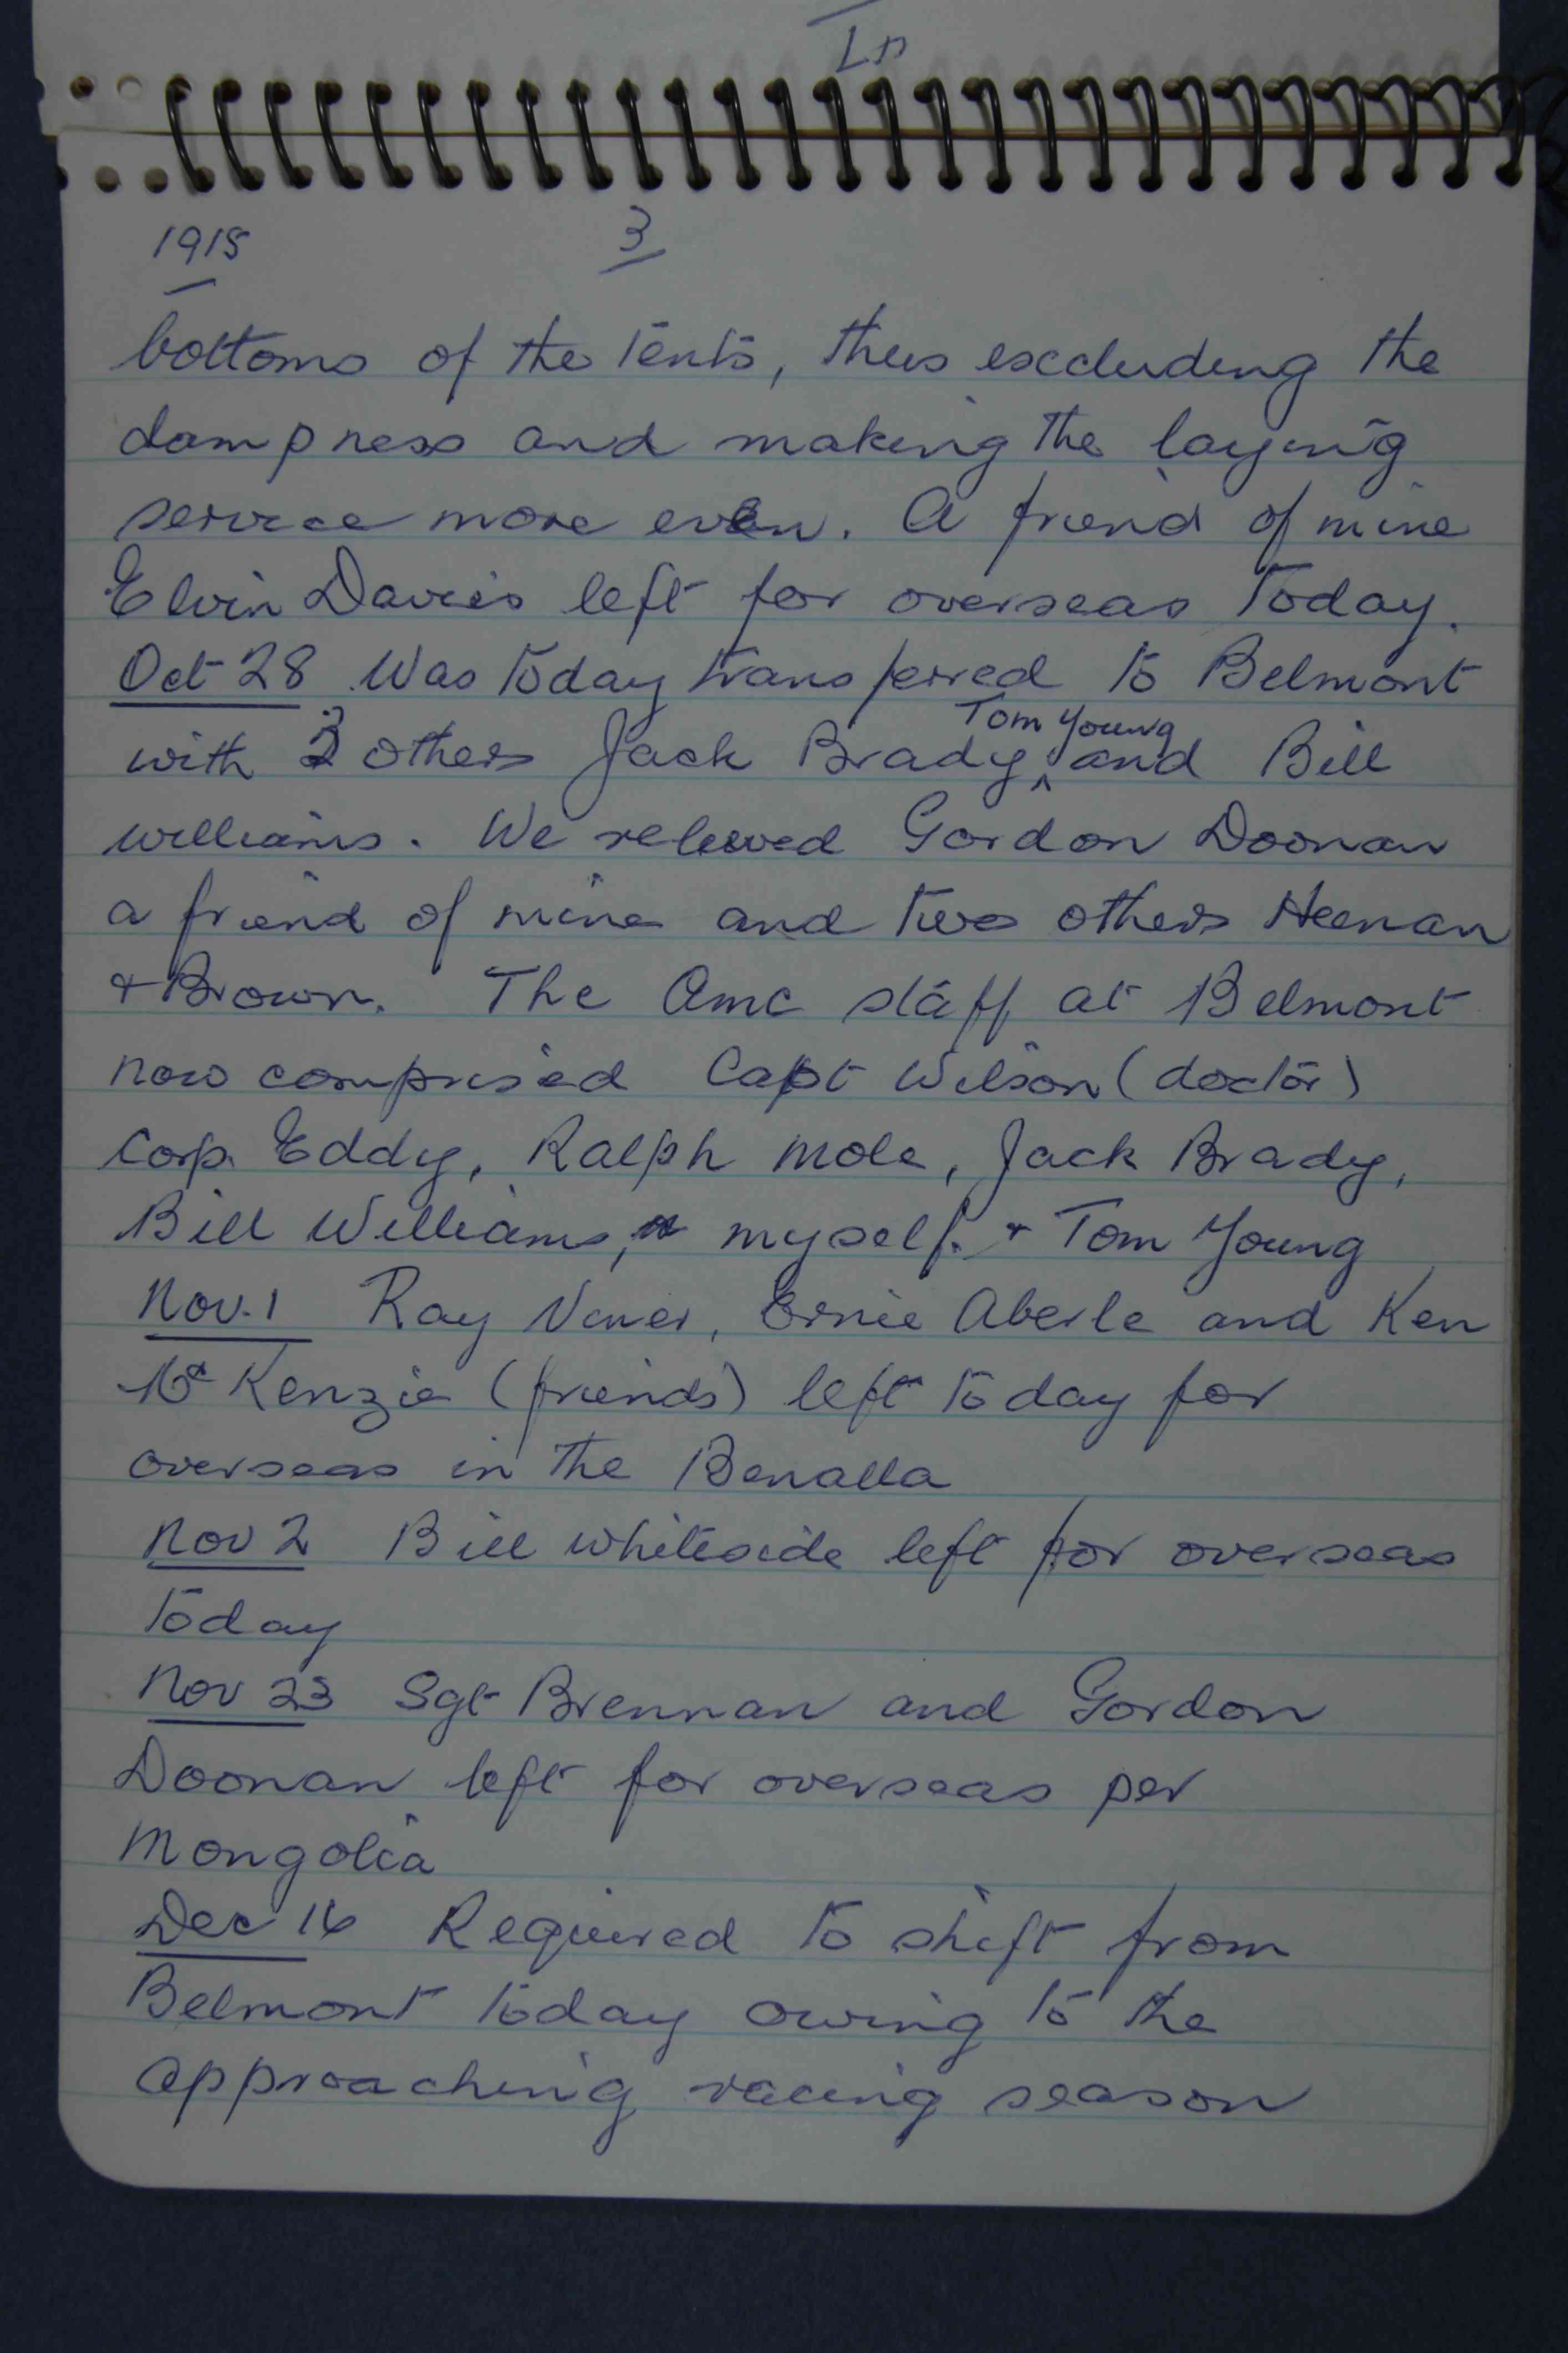 1915 3
bottoms of the tents, thus excluding the
dampness and making the laying
service more even. A friend of mine
Elvin Davies left for overseas today.
Oct 28 Was today transferred to Belmont
with 3 others Jack Brady, Tom Young and Bill
Williams. We relieved Gordon Doonan
a friend of mine and two others Heenan
+ Brown. The Amc staff at Belmont
now comprised Capt Wilson (doctor)
Corp. Eddy, Ralph Mole, Jack Brady,
Bill Williams, myself. + Tom Young
Nov. 1 Ray Viner, Ernie Aberle and Ken
McKenzie (friends) left today for
overseas in the Benalla
Nov 2 Bill Whiteside left for overseas
today
Nov 23 Sgt Brennan and Gordon
Doonan left for overseas per
Mongolia
Dec 16 Required to shift from
Belmont today owing to the
approaching racing season